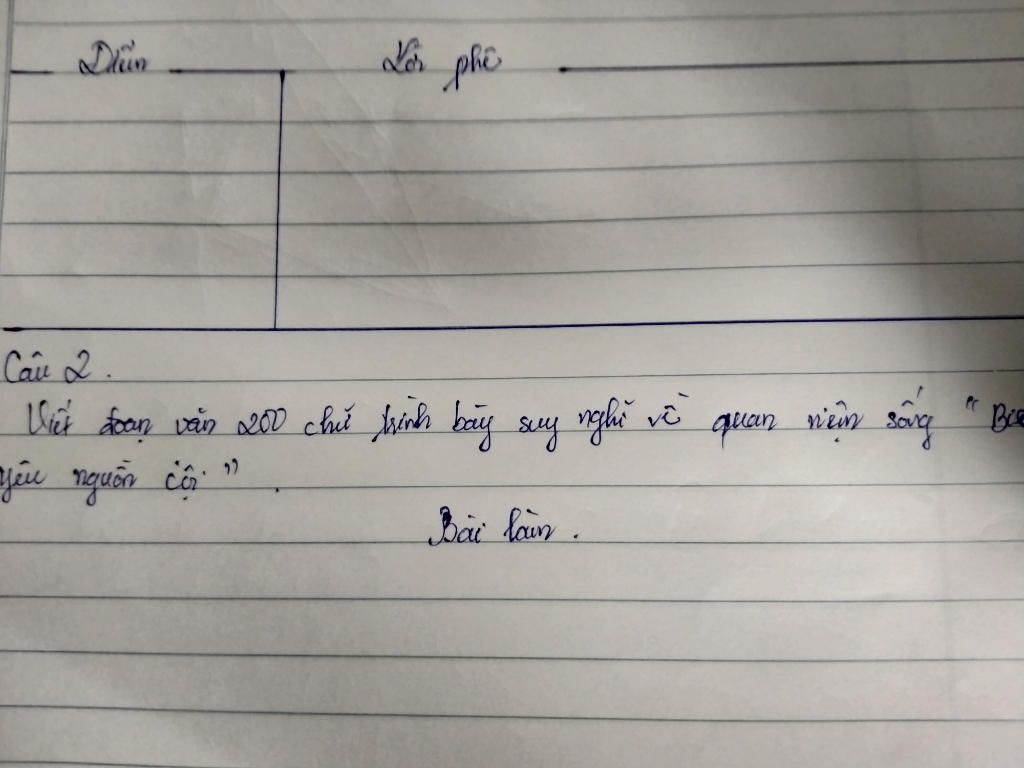 Điểm Lời phê
Câu 2.
Viết đoạn văn 200 chữ trình bày suy nghĩ về quan niệm sống "
yêu nguồn cội".
Bài làm.